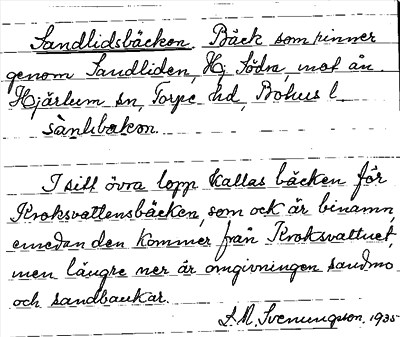 Sandlidsbäcken. Bäck som rinner
genom Sandliden, Hj. Södra, mot ån.
Hjärtum sn, Torpe hd, Bohus l.
Kallas i sitt övre lopp
I sitt övra lopp kallas bäcken för
Kroksvattensbäcken, som ock är binamn,
emedan den kommer från Kroksvattnet,
men längre ner är omgivningen sandmo
och sandbankar.
S. M. Svenungson, 1935